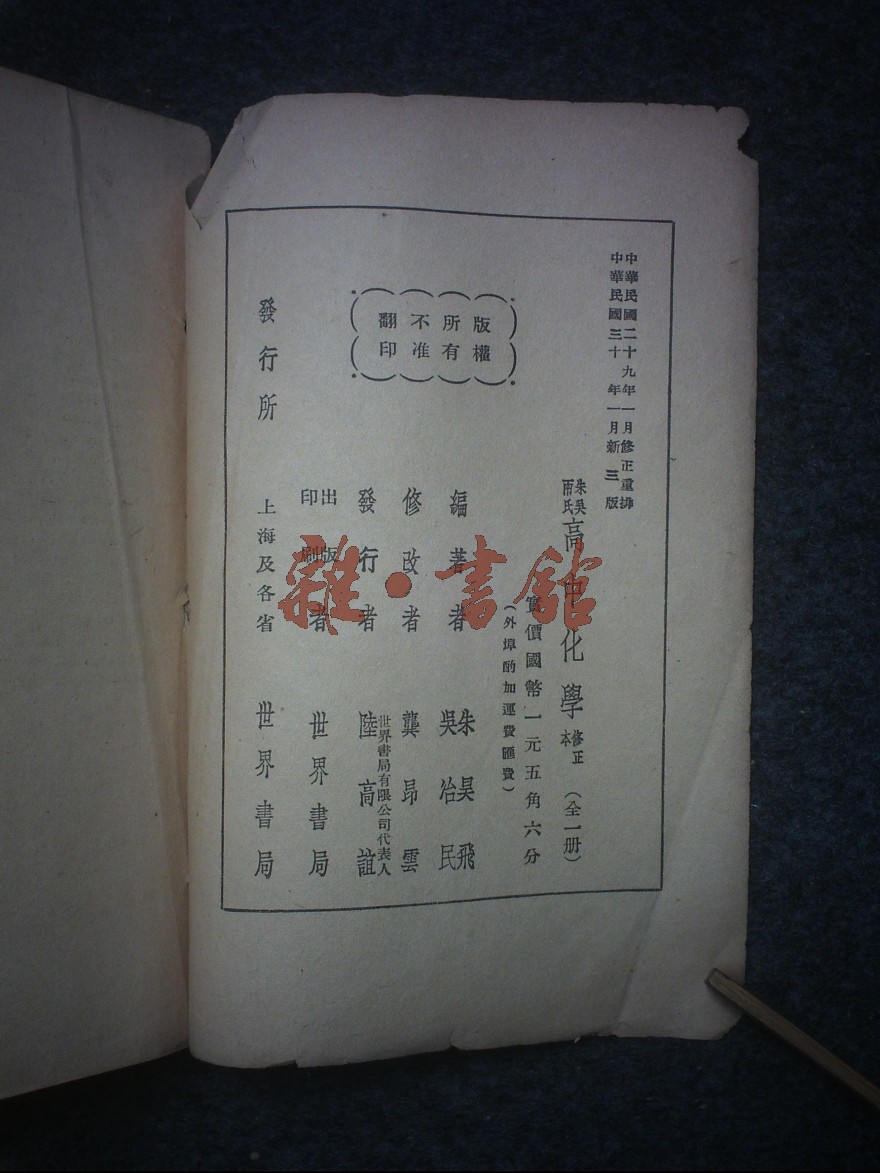 中華民國二十九年一月修正重排
中華民國三十年一月新三版
朱吳
兩氏
高中化學
修正
本
(全一册)
實價國幣一元五角六分
(外埠酌加運費匯費)
版權
所有
不准
翻印
編著者
朱昊飛
吳冶民
修改者
龔昂雲
發行者
世界書局有限公司代表人
陸高誼
出版
印刷
者
世界書局
發行所
上海及各省
世界書局
雜·書館